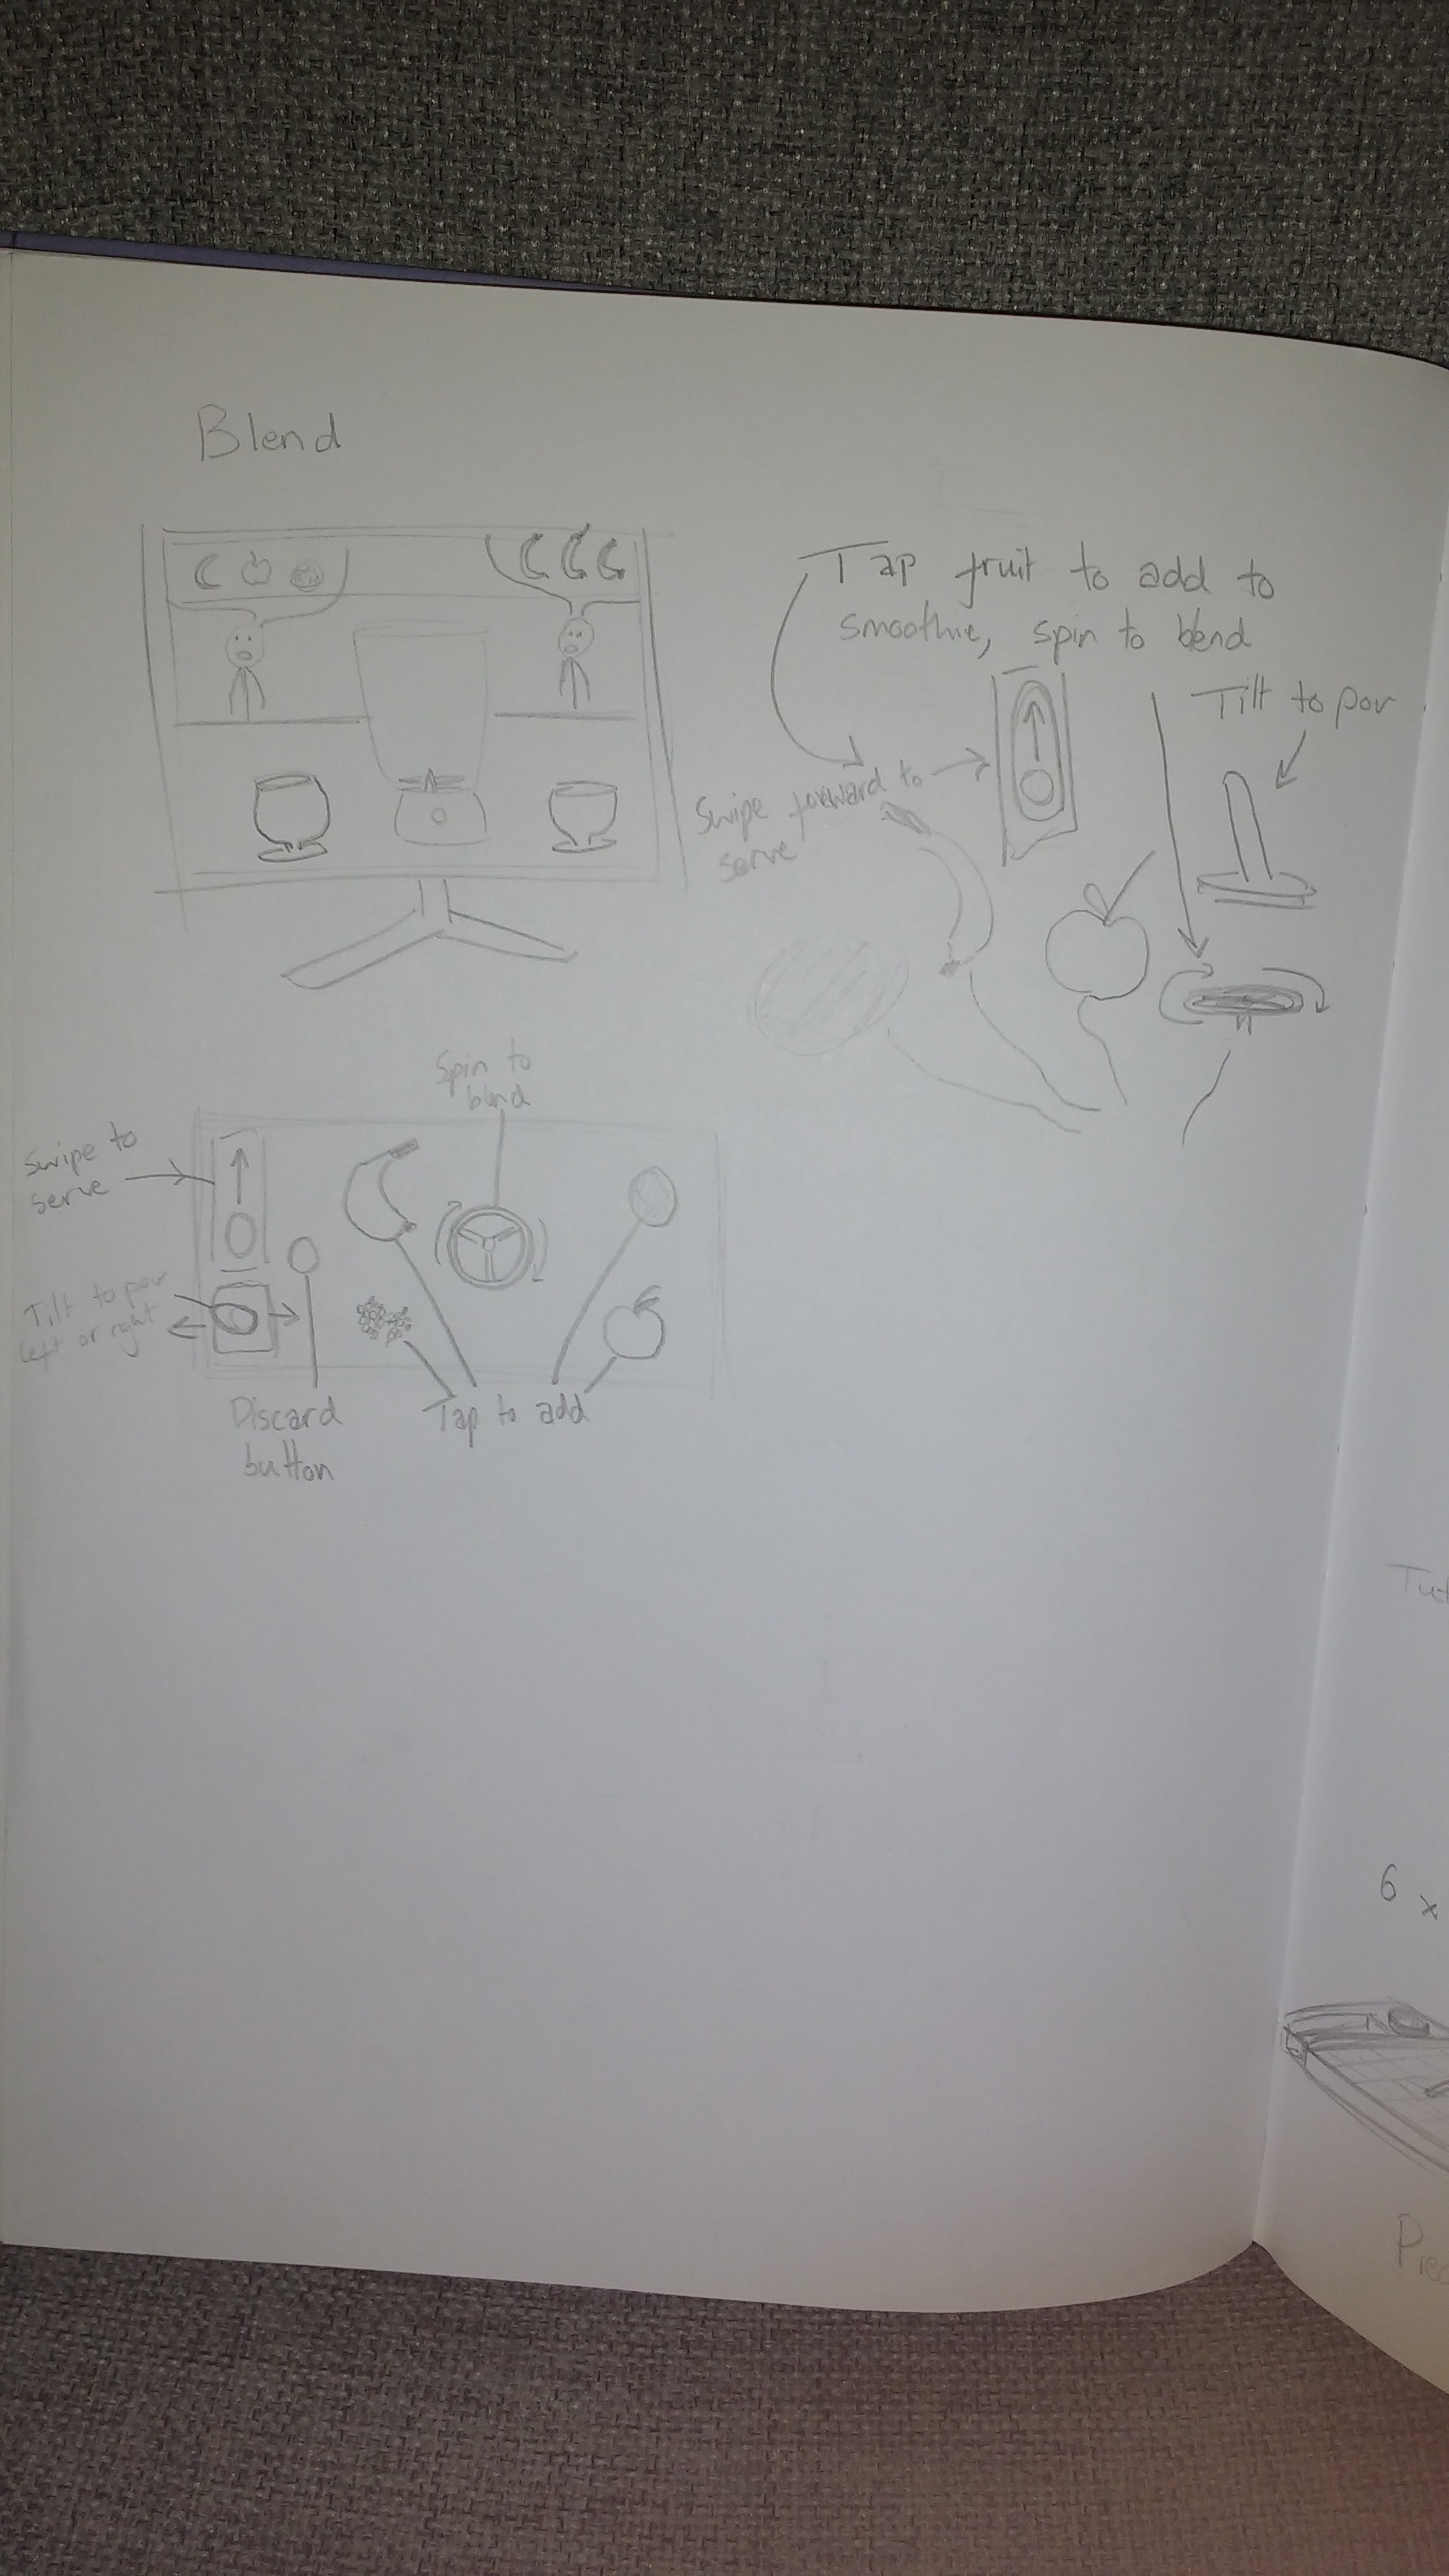 Blend
Tap fruit to add to
smoothie, spin to blend
Tilt to por
Swipe forward to
serve
Spin to
blend
Swipe to
serve
Tilt to por
left or right
Discard
button
Tap to add
6 x